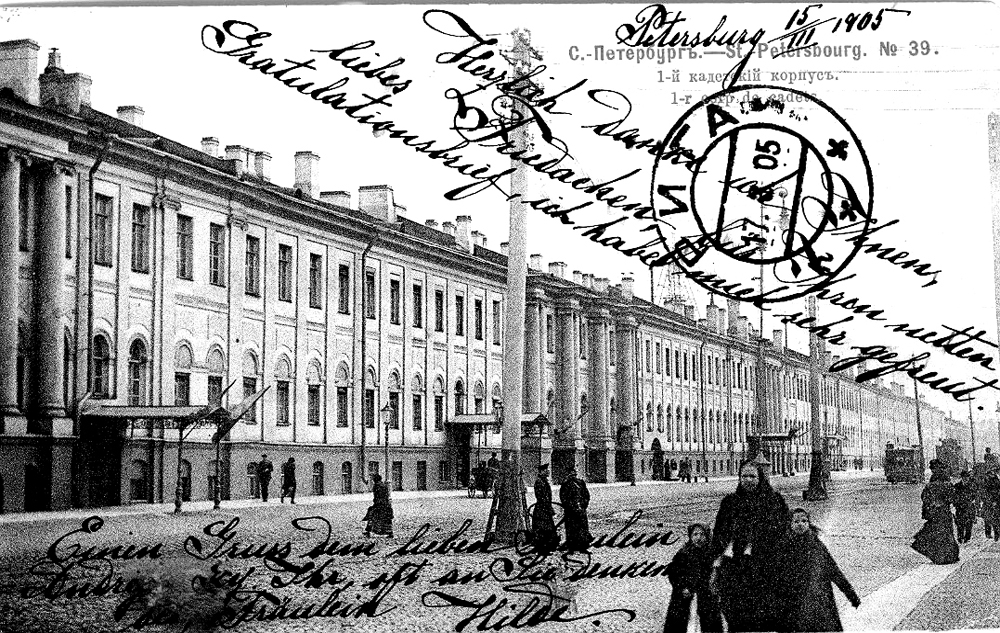 Petersburg 15/III 1905
С.-Петербургъ.—St.-Petersbourg. № 39.
1-й кадетскій корпусъ.
1-r corp de cadets.
Herzlich Danke ich Ihnen,
liebes Friedachen, für Ihren netten
Gratulationsbrief, ich habe mich sehr gefreut.
05
Einen Gruss dem lieben Fräulein
Ihr, oft an Sie denken
Fräulein Hilde.